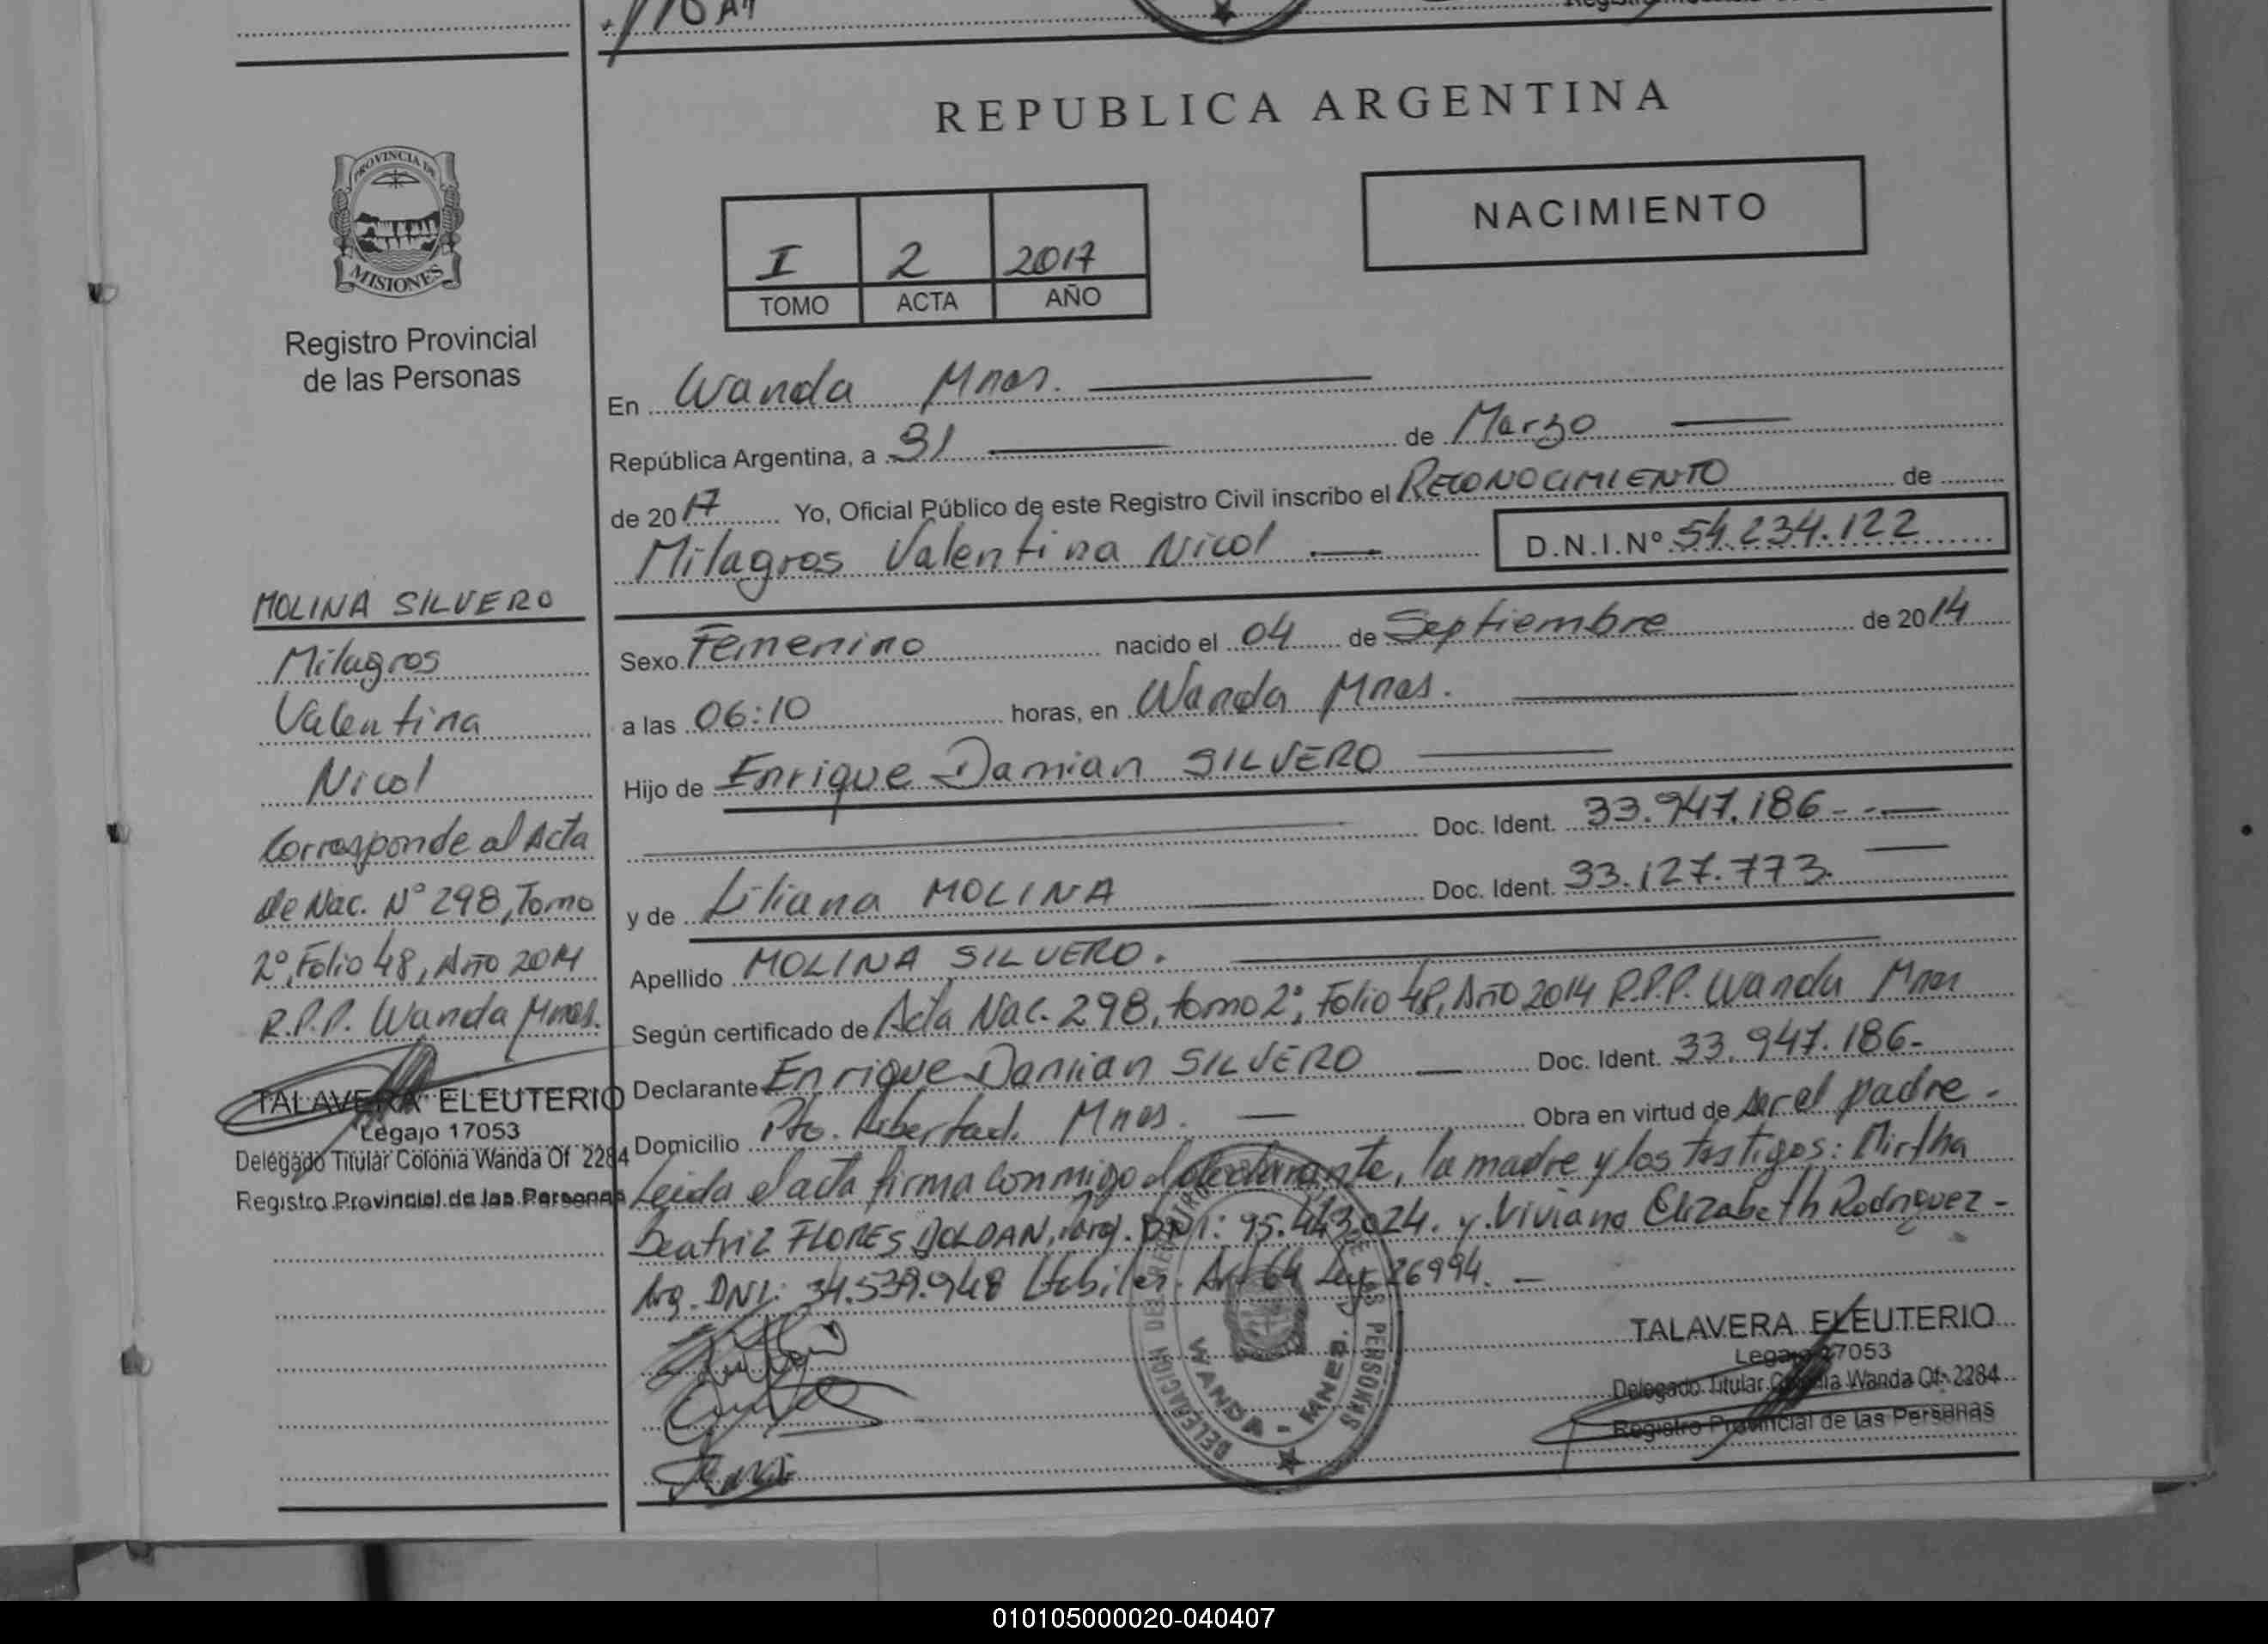 REPUBLICA ARGENTINA
PROVINCIA DE
MISIONES
Registro Provincial
de las Personas
NACIMIENTO
I 2 2017
TOMO ACTA AÑO
En Wanda Mnes.
República Argentina, a 31 de Marzo
de 2017 Yo, Oficial Público de este Registro Civil inscribo el RECONOCIMIENTO de
Milagros Valentina Nicol D.N.I.Nº 54.234.122
Sexo Femenino nacido el 04 de Septiembre de 2014
a las 06:10 horas, en Wanda Mnes.
Hijo de Enrique Damian SILVERO
Doc. Ident. 33.947.186
y de Liliana MOLINA Doc. Ident. 33.127.773
Apellido MOLINA SILVERO.
Según certificado de Acta Nac. 298, tomo 2º, Folio 48, Año 2014 R.P.P. Wanda Mnes
Declarante Enrique Damian SILVERO Doc. Ident. 33.947.186
Domicilio Pto. Libertad. Mnes. Obra en virtud de ser el padre
Leida el acta firma conmigo el declarante, la madre y los testigos: Mirtha
Beatriz FLORES DOLDAN, DNI: 95.443.024. y Viviana Elizabeth Rodriguez
Arg. DNI: 34.539.948 Hábiles. Art 64 Ley 26994.
MOLINA SILVERO
Milagros
Valentina
Nicol
Corresponde al Acta
de Nac. Nº 298, Tomo
2º, Folio 48, Año 2014
R.P.P. Wanda Mnes.
TALAVERA ELEUTERIO
Legajo 17053
Delegado Titular Colonia Wanda Of 2284
Registro Provincial de las Personas
DELEGACION DE REGISTRO DE LAS PERSONAS
WANDA - MNES.
TALAVERA ELEUTERIO
Legajo 17053
Delegado Titular Colonia Wanda Of. 2284
Registro Provincial de las Personas
010105000020-040407